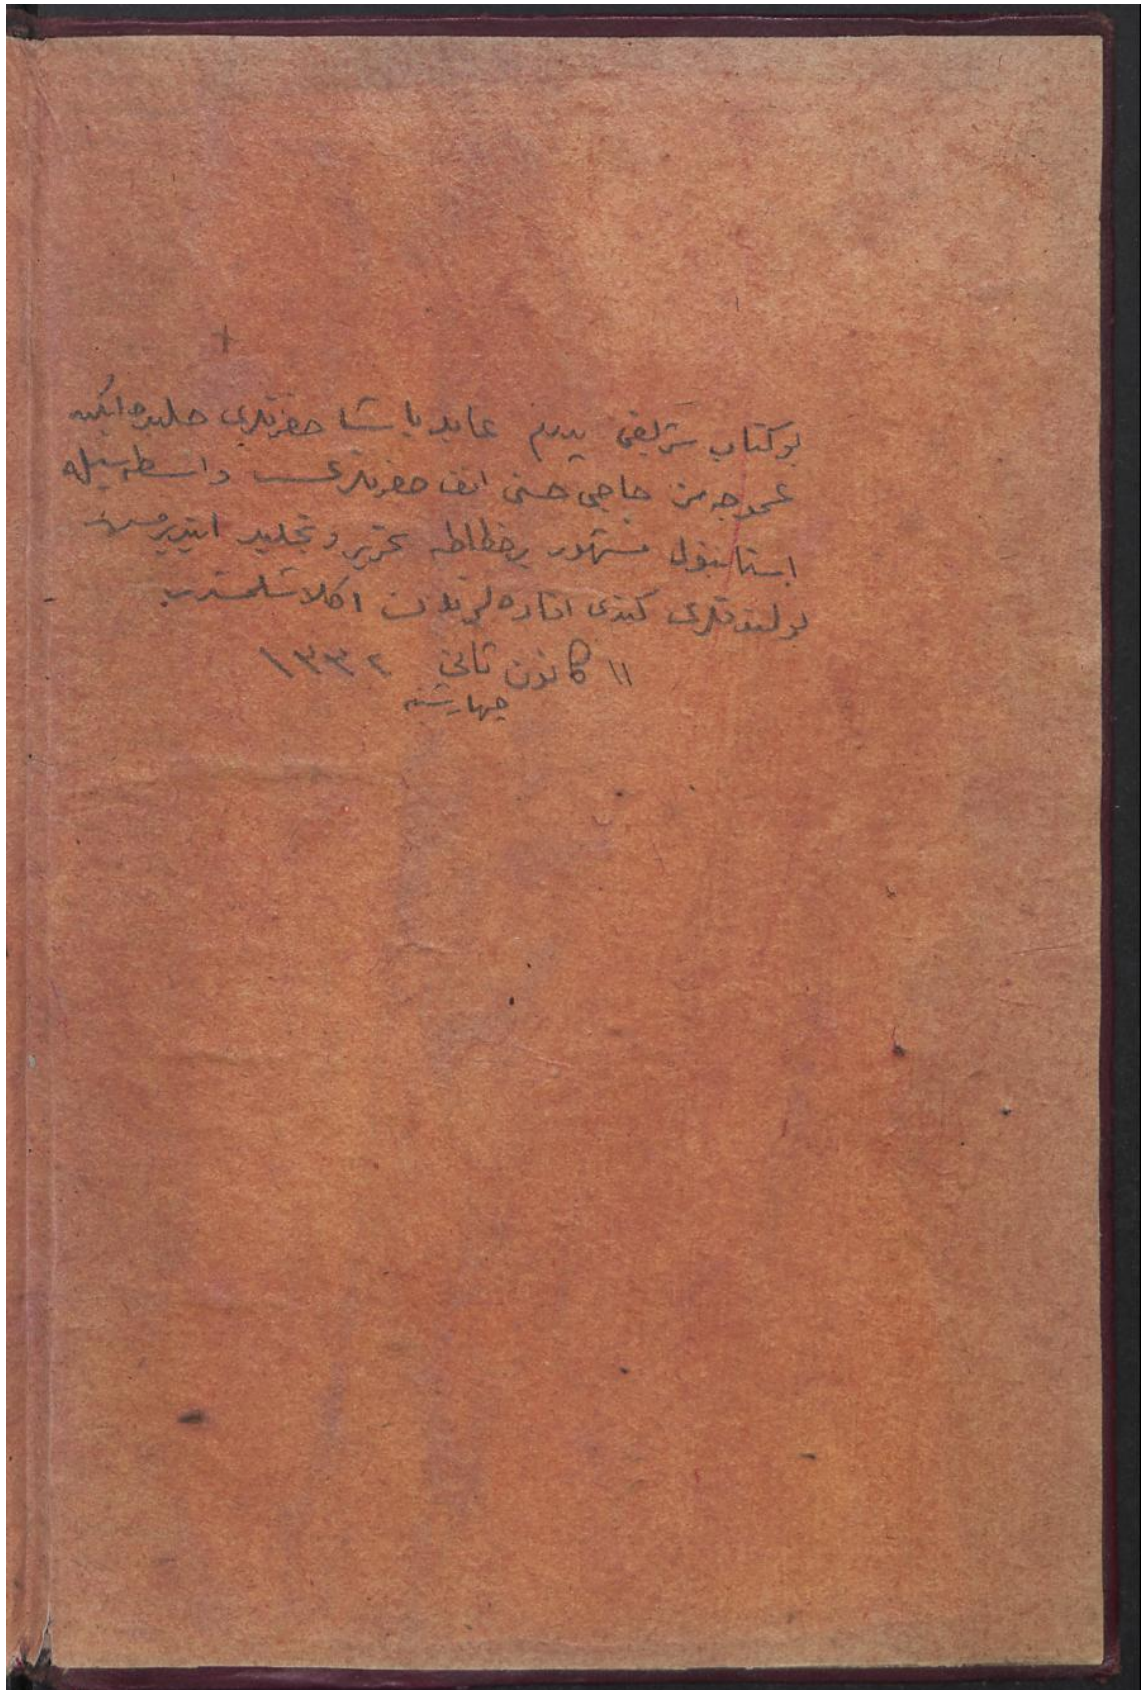 بو كتاب شريفى پدرم عابد پاشا حضرتلرى حلبده ايكن
عموجه‌مز حاجى حسنى افندى حضرتلرى واسطه‌سيله
استانبول مشهور خطاطه تحرير و تجليد ايتديرمش
بولندقلرى كندى افاده‌لرندن اكلاشلمشدر
١١ كانون ثانى ١٣٣٢
چهارشنبه